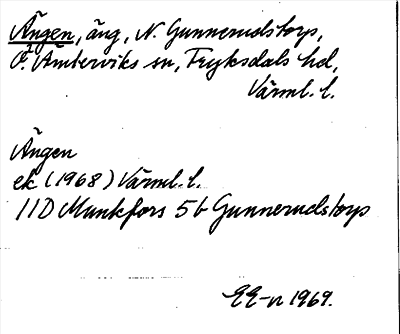 Ängen, äng, N. Gunnerudstorp,
Ö. Ämterviks sn, Fryksdals hd,
Värml. l.
Ängen
ek (1968) Värml. l.
11D Munkfors 5b Gunnerudstorp
EE-n 1969.